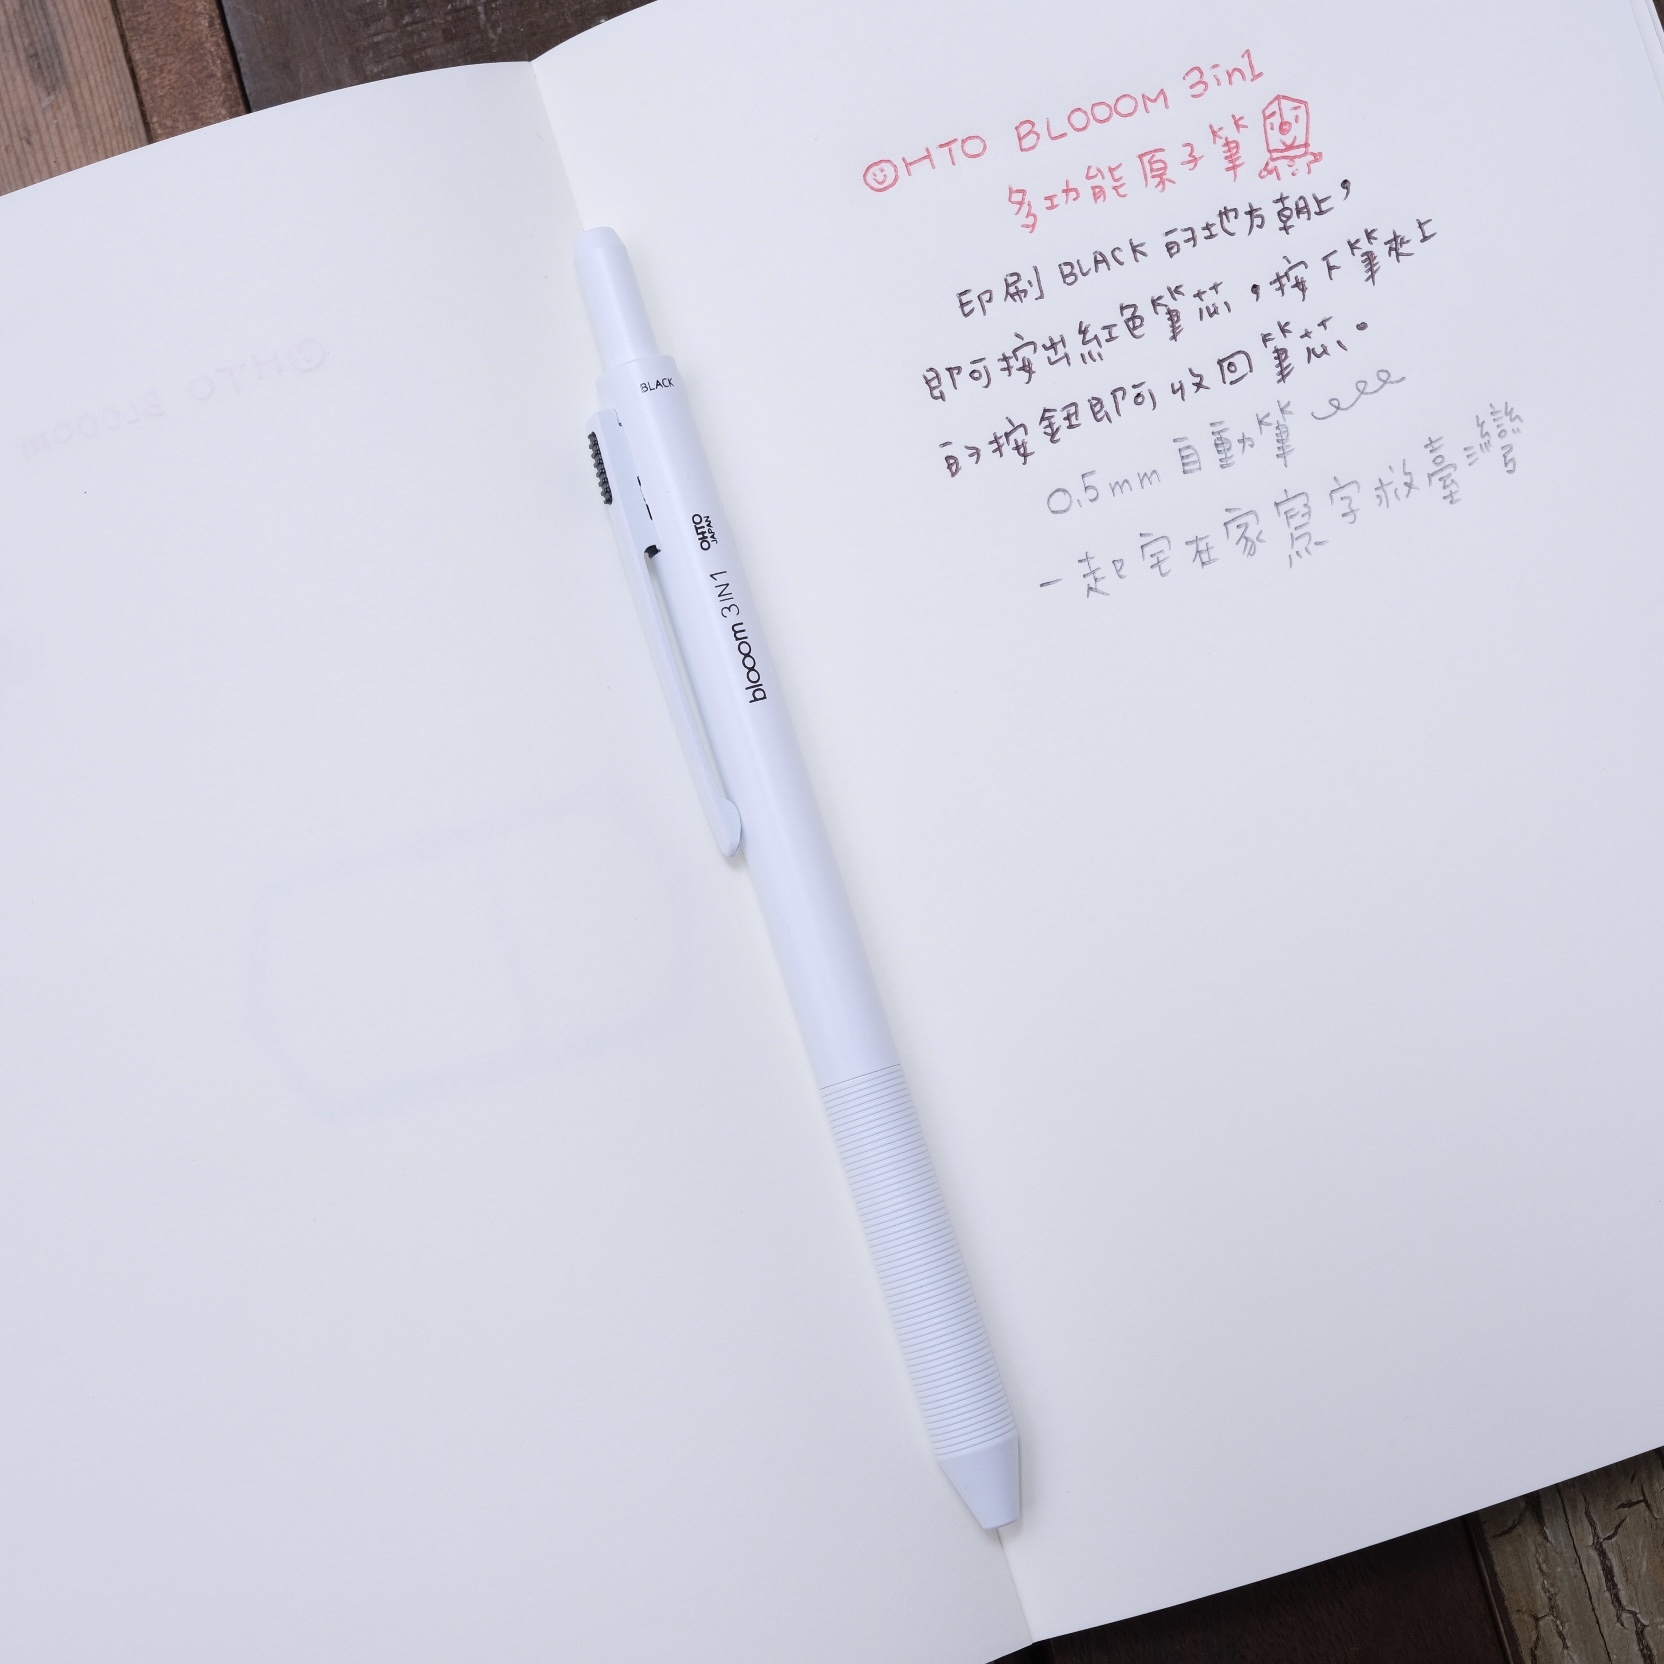 OHTO BLOOOM 3in1
多功能原子筆
印刷 BLACK 的地方朝上，
即可按出紅色筆芯，按下筆夾上
的按鈕即可收回筆芯。
0.5mm 自動筆
一起宅在家寫字救臺灣
BLACK
OHTO
JAPAN
blooom 3IN1
OHTO BLOOOM